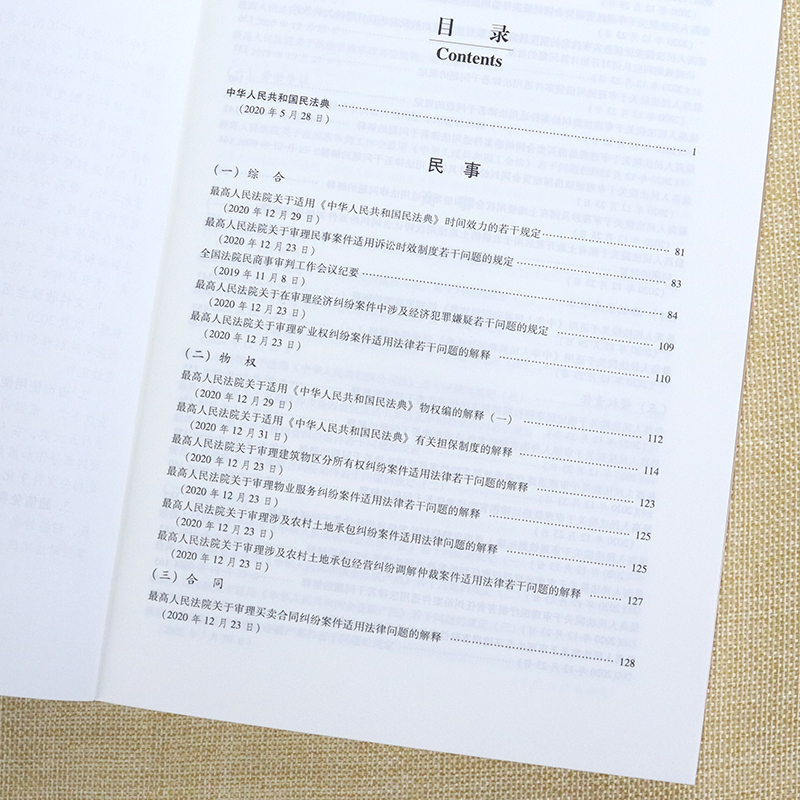 目 录
Contents
中华人民共和国民法典 1
(2020 年 5 月 28 日)
民 事
(一) 综 合
最高人民法院关于适用《中华人民共和国民法典》时间效力的若干规定 81
(2020 年 12 月 29 日)
最高人民法院关于审理民事案件适用诉讼时效制度若干问题的规定 83
(2020 年 12 月 23 日)
全国法院民商事审判工作会议纪要 84
(2019 年 11 月 8 日)
最高人民法院关于在审理经济纠纷案件中涉及经济犯罪嫌疑若干问题的规定 109
(2020 年 12 月 23 日)
最高人民法院关于审理矿业权纠纷案件适用法律若干问题的解释 110
(2020 年 12 月 23 日)
(二) 物 权
最高人民法院关于适用《中华人民共和国民法典》物权编的解释(一) 112
(2020 年 12 月 29 日)
最高人民法院关于适用《中华人民共和国民法典》有关担保制度的解释 114
(2020 年 12 月 31 日)
最高人民法院关于审理建筑物区分所有权纠纷案件适用法律若干问题的解释 123
(2020 年 12 月 23 日)
最高人民法院关于审理物业服务纠纷案件适用法律若干问题的解释 125
(2020 年 12 月 23 日)
最高人民法院关于审理涉及农村土地承包纠纷案件适用法律问题的解释 125
(2020 年 12 月 23 日)
最高人民法院关于审理涉及农村土地承包经营纠纷调解仲裁案件适用法律若干问题的解释 127
(2020 年 12 月 23 日)
(三) 合 同
最高人民法院关于审理买卖合同纠纷案件适用法律问题的解释 128
(2020 年 12 月 23 日)